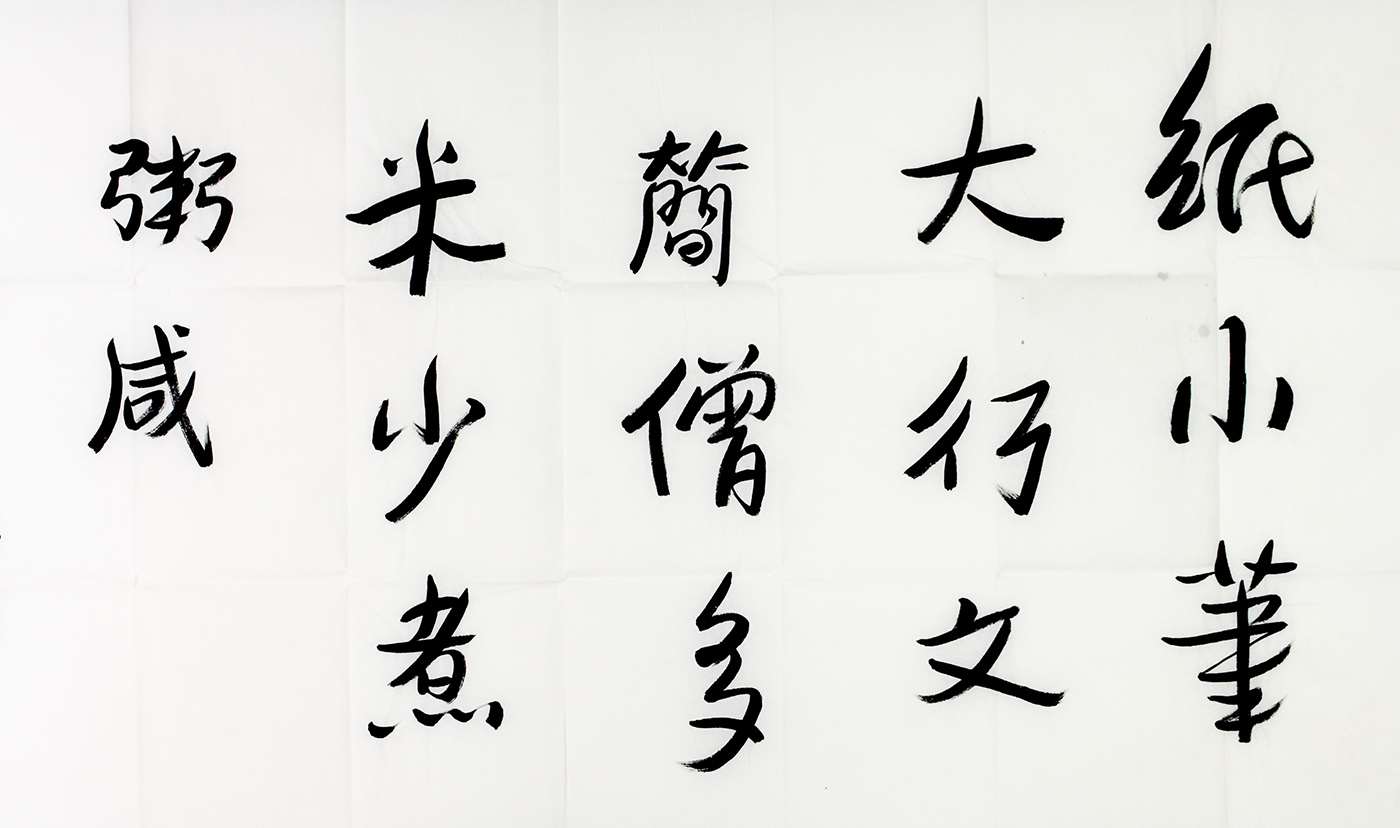 纸小筆
大行文
簡僧多
米少煮
粥咸